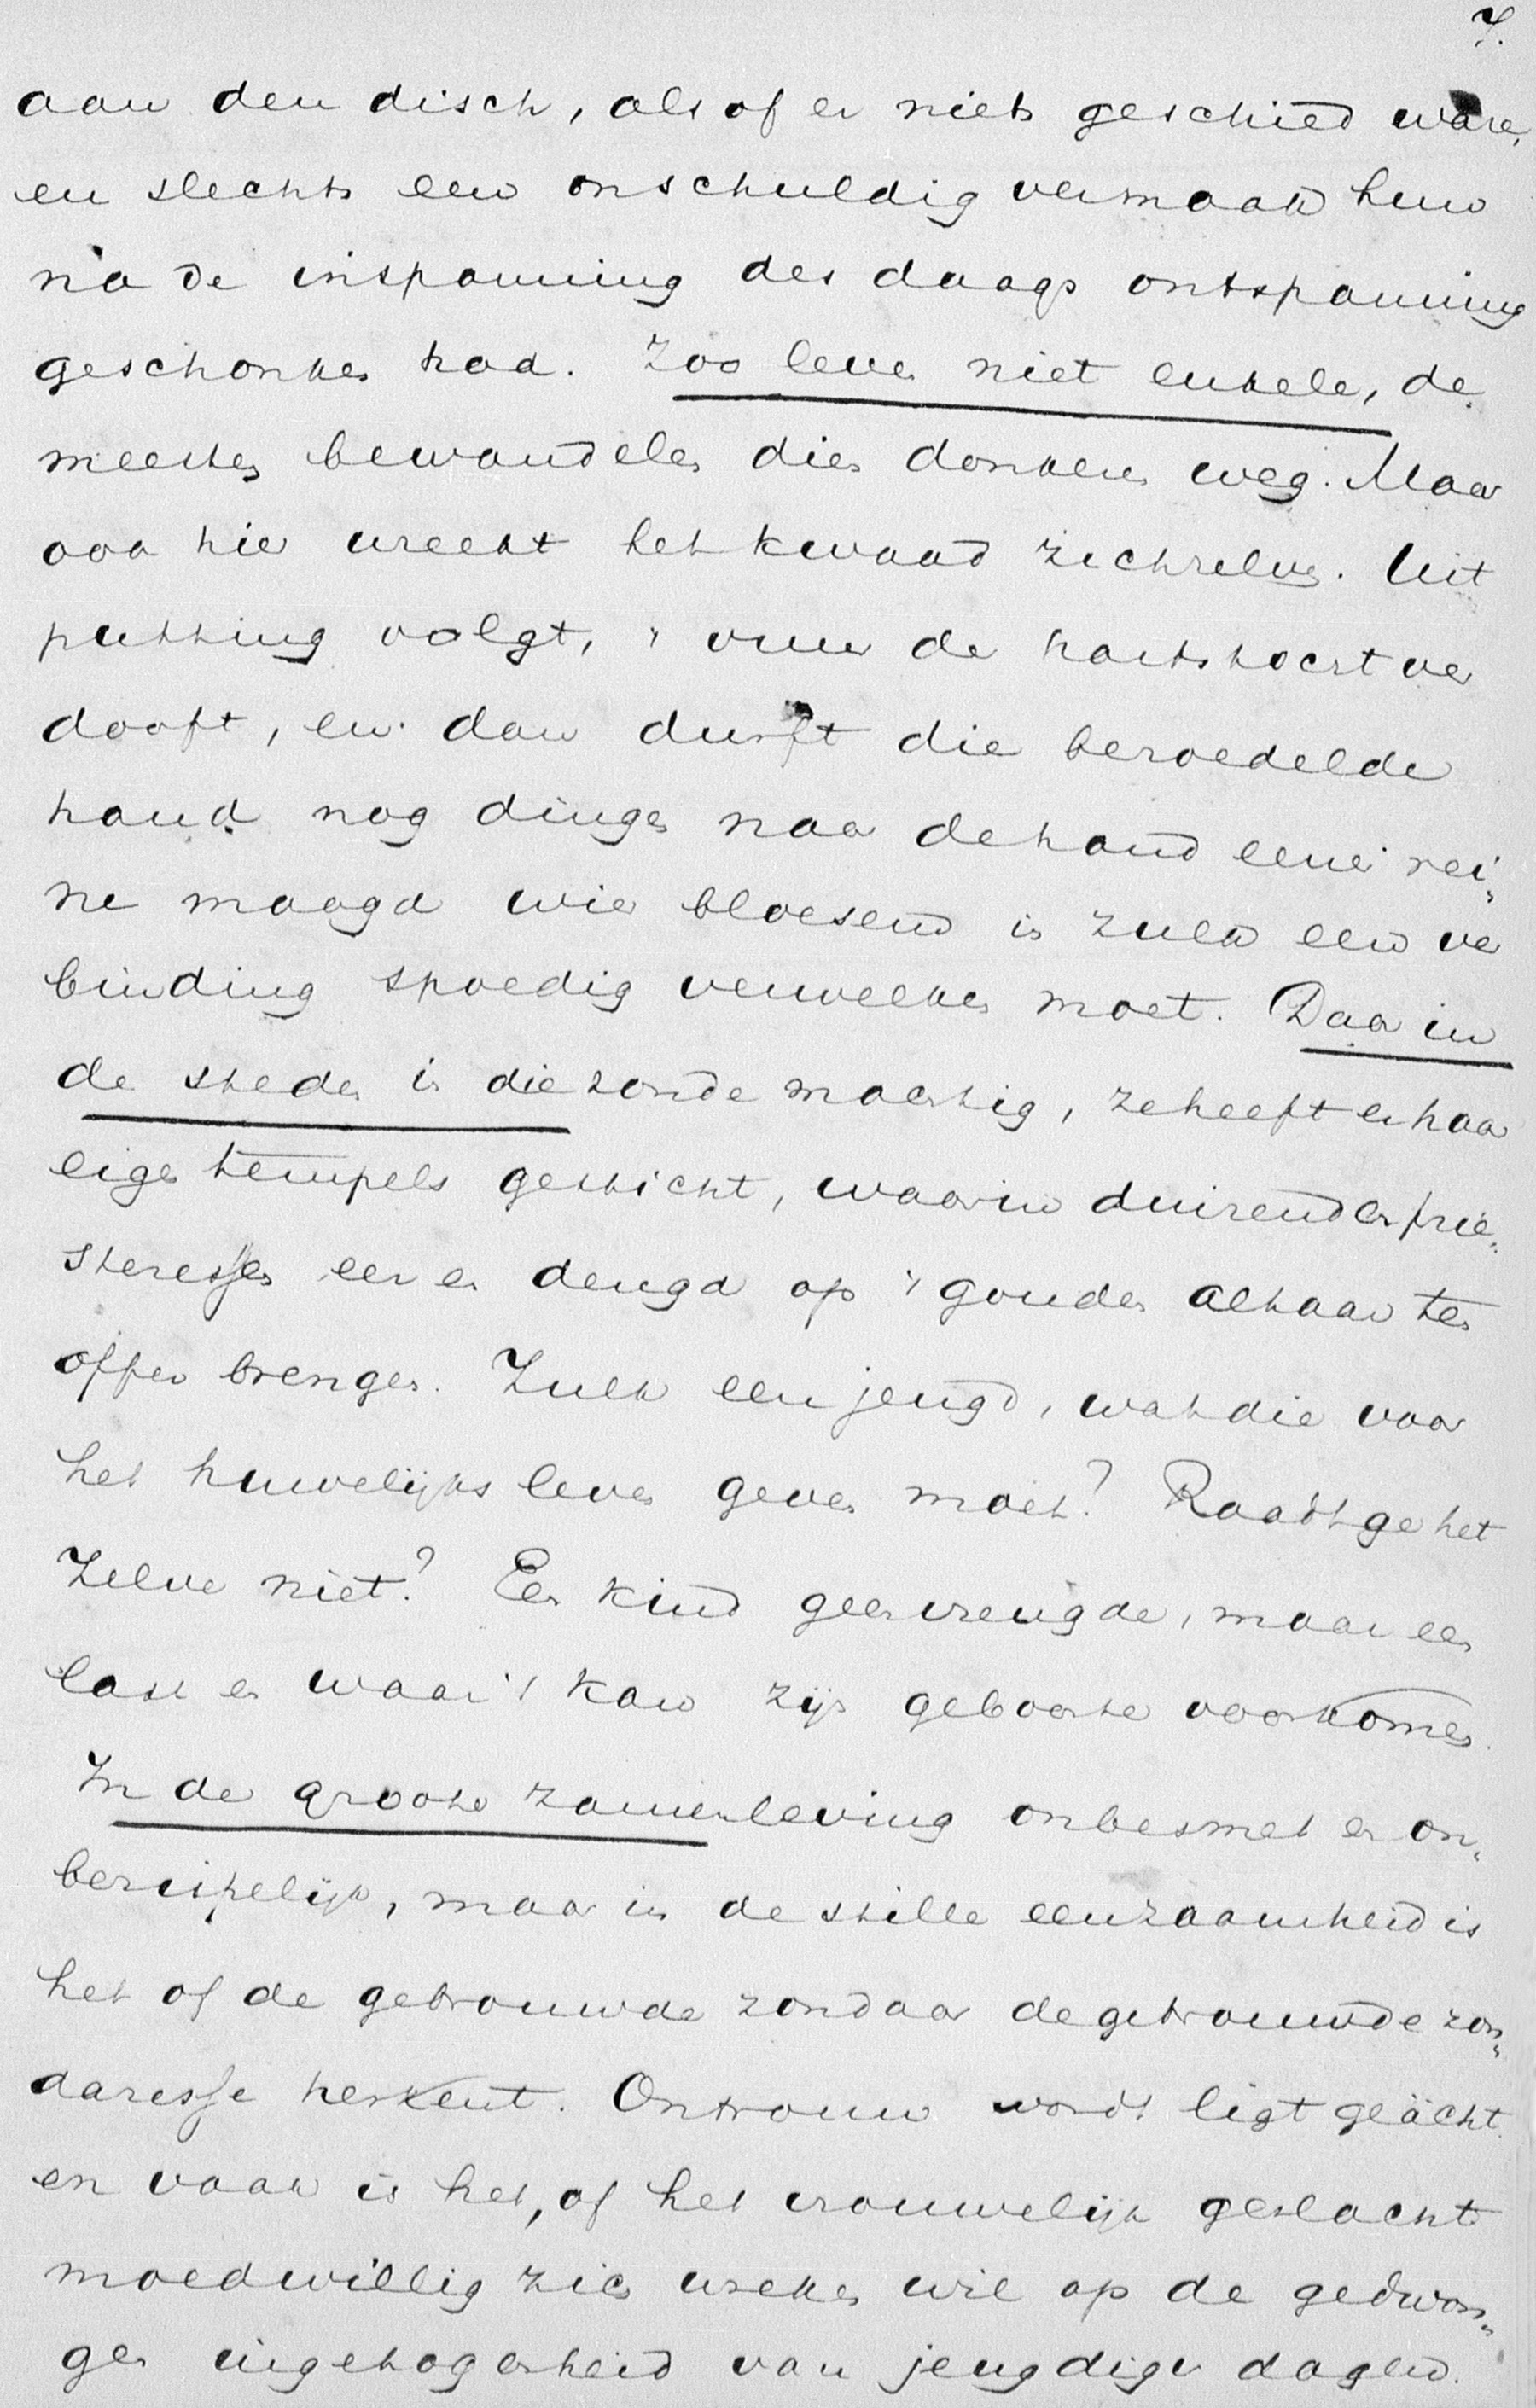 7.
aan den disch, als of er niets geschied ware,
en slechts een onschuldig vermaak hun
na de inspanning des daags ontspanning
geschonken had. Zoo leven niet enkele, de
meesten bewandelen dien donkeren weg. Maar
ook hier wreekt het kwaad zichzelve. Uit
putting volgt, 't vuur de hartstocht ver
dooft, en dan durft die bezoedelde
hand nog dingen naar de hand eener rei„
ne maagd wier bloesem in zulk een ver
binding spoedig verwelken moet. Daar in
de steden is die zonde machtig, ze heeft er haar
eigen tempels gesticht, waarin duizenden prie„
steressen eer en deugd op 't gouden altaar ten
offer brengen. Zulk een jeugd, wat die voor
het huwelijksleven geven moet? Raadt ge het
zelve niet? Een kind geen vreugde, maar een
last en waar 't kan zijn geboorte voorkomen.
In de groote zamenleving onbesmet en on„
berispelijk, maar in de stille eenzaamheid is
het of de getrouwde zondaar de getrouwde zon„
daresse herkent. Ontrouw wordt ligt geächt
en vaak is het, of het vrouwelijk geslacht
moedwillig zich wreken wil op de gedwon„
gen ingetogenheid van jeugdige dagen.